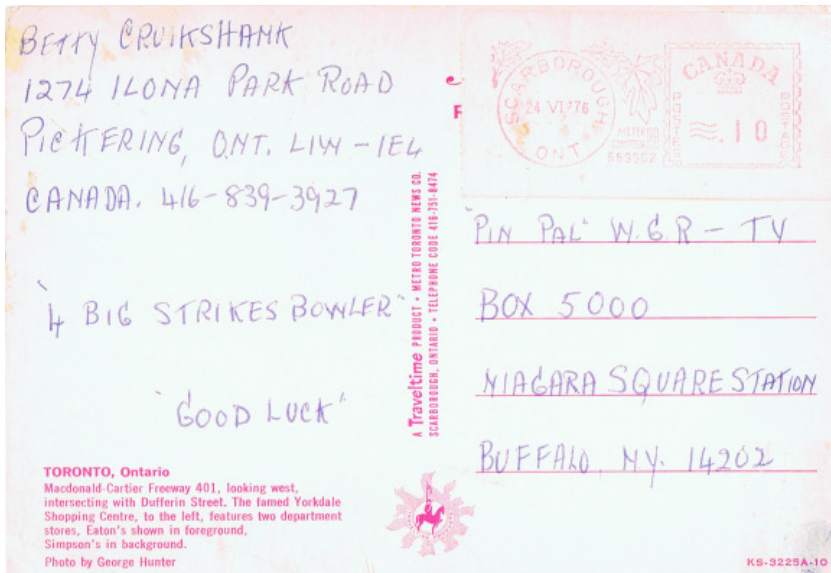 BETTY CRUIKSHANK
1274 ILONA PARK ROAD
PICKERING, ONT. L1W - 1E4
CANADA. 416-839-3927
"4 BIG STRIKES BOWLER"
"GOOD LUCK"
TORONTO, Ontario
Macdonald-Cartier Freeway 401, looking west,
intersecting with Dufferin Street. The famed Yorkdale
Shopping Centre, to the left, features two department
stores, Eaton's shown in foreground,
Simpson's in background.
Photo by George Hunter
A Traveltime PRODUCT • METRO TORONTO NEWS CO.
SCARBOROUGH, ONTARIO • TELEPHONE CODE 416-751-8474
SCARBOROUGH
24 VI '76
ONT
CANADA
POSTES
POSTAGE
.10
METER
COMPTEUR
"PIN PAL" W.G.R - TV
BOX 5000
NIAGARA SQUARE STATION
BUFFALO, NY. 14202
KS-3225A-10